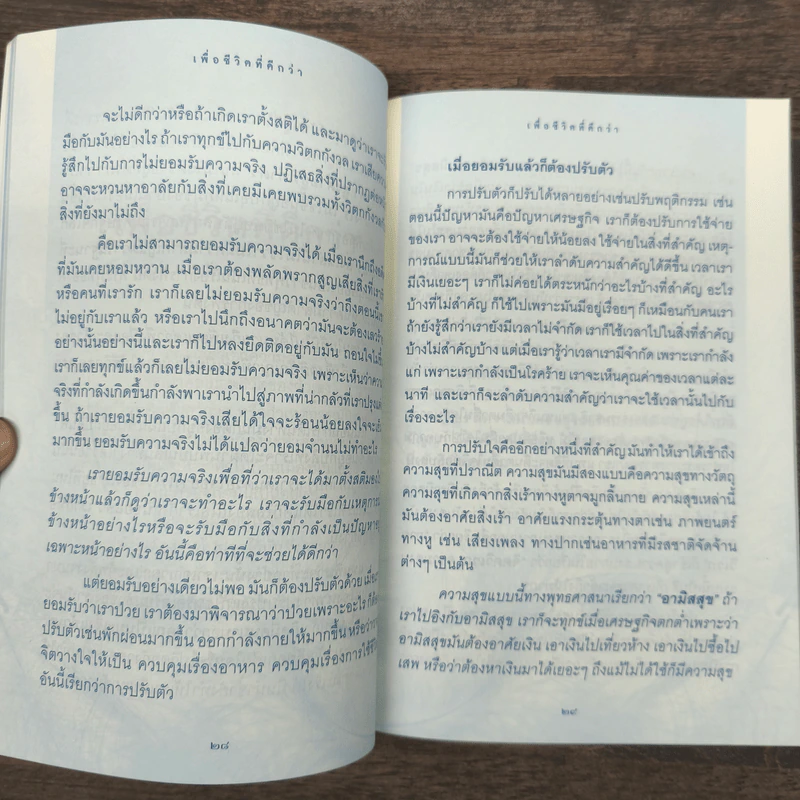 เพื่อชีวิตที่ดีกว่า
จะไม่ดีกว่าหรือถ้าเกิดเราตั้งสติได้ และมาดูว่าเราจะ
มือกับมันอย่างไร ถ้าเราทุกข์ไปกับความวิตกกังวล เราเสียความ
รู้สึกไปกับการไม่ยอมรับความจริง ปฏิเสธสิ่งที่ปรากฏต่อ
อาจจะหวนหาอาลัยกับสิ่งที่เคยมีเคยพบรวมทั้งวิตกกังวลกับ
สิ่งที่ยังมาไม่ถึง
คือเราไม่สามารถยอมรับความจริงได้ เมื่อเรานึกถึง
ที่มันเคยหอมหวาน เมื่อเราต้องพลัดพรากสูญเสียสิ่งที่เรา
หรือคนที่เรารัก เราก็เลยไม่ยอมรับความจริงว่าถึงตอนนี้
ไม่อยู่กับเราแล้ว หรือเราไปนึกถึงอนาคตว่ามันจะต้องเลวร้าย
อย่างนั้นอย่างนี้และเราก็ไปหลงยึดติดอยู่กับมัน ถอนใจไม่
เราก็เลยทุกข์แล้วก็เลยไม่ยอมรับความจริง เพราะเห็นว่าความ
จริงที่กำลังเกิดขึ้นกำลังพาเรานำไปสู่ภาพที่น่ากลัวที่เราปรุงแต่ง
ขึ้น ถ้าเรายอมรับความจริงเสียได้ใจจะร้อนน้อยลงใจจะ
มากขึ้น ยอมรับความจริงไม่ได้แปลว่ายอมจำนนไม่ทำอะไร
เรายอมรับความจริงเพื่อที่ว่าเราจะได้มาตั้งสติมอง
ข้างหน้าแล้วก็ดูว่าเราจะทำอะไร เราจะรับมือกับเหตุการณ์
ข้างหน้าอย่างไรหรือจะรับมือกับสิ่งที่กำลังเป็นปัญหา
เฉพาะหน้าอย่างไร อันนี้คือท่าทีที่จะช่วยได้ดีกว่า
แต่ยอมรับอย่างเดียวไม่พอ มันก็ต้องปรับตัวด้วย เมื่อ
ยอมรับว่าเราป่วย เราต้องมาพิจารณาว่าป่วยเพราะอะไร ก็ต้อง
ปรับตัวเช่นพักผ่อนมากขึ้น ออกกำลังกายให้มากขึ้น หรือว่า
จิตวางใจให้เป็น ควบคุมเรื่องอาหาร ควบคุมเรื่องการใช้ชีวิต
อันนี้เรียกว่าการปรับตัว
๒๘
เพื่อชีวิตที่ดีกว่า
เมื่อยอมรับแล้วก็ต้องปรับตัว
การปรับตัวก็ปรับได้หลายอย่างเช่นปรับพฤติกรรม เช่น
ตอนนี้ปัญหามันคือปัญหาเศรษฐกิจ เราก็ต้องปรับการใช้จ่าย
ของเรา อาจจะต้องใช้จ่ายให้น้อยลง ใช้จ่ายในสิ่งที่สำคัญ เหตุ-
การณ์แบบนี้มันก็ช่วยให้เราลำดับความสำคัญได้ดีขึ้น เวลาเรา
มีเงินเยอะๆ เราก็ไม่ค่อยได้ตระหนักว่าอะไรบ้างที่สำคัญ อะไร
บ้างที่ไม่สำคัญ ก็ใช้ไปเพราะมันมีอยู่เรื่อยๆ ก็เหมือนกับคนเรา
ถ้ายังรู้สึกว่าเรายังมีเวลาไม่จำกัด เราก็ใช้เวลาไปในสิ่งที่สำคัญ
บ้างไม่สำคัญบ้าง แต่เมื่อเรารู้ว่าเวลาเรามีจำกัด เพราะเรากำลัง
แก่ เพราะเรากำลังเป็นโรคร้าย เราจะเห็นคุณค่าของเวลาแต่ละ
นาที และเราก็จะลำดับความสำคัญว่าเราจะใช้เวลานั้นไปกับ
เรื่องอะไร
การปรับใจคืออีกอย่างหนึ่งที่สำคัญ มันทำให้เราได้เข้าถึง
ความสุขที่ปราณีต ความสุขมันมีสองแบบคือความสุขทางวัตถุ
ความสุขที่เกิดจากสิ่งเร้าทางหูตาจมูกลิ้นกาย ความสุขเหล่านี้
มันต้องอาศัยสิ่งเร้า อาศัยแรงกระตุ้นทางตาเช่น ภาพยนตร์
ทางหู เช่น เสียงเพลง ทางปากเช่นอาหารที่มีรสชาติจัดจ้าน
ต่างๆ เป็นต้น
ความสุขแบบนี้ทางพุทธศาสนาเรียกว่า "อามิสสุข" ถ้า
เราไปอิงกับอามิสสุข เราก็จะทุกข์เมื่อเศรษฐกิจตกต่ำเพราะว่า
อามิสสุขมันต้องอาศัยเงิน เอาเงินไปเที่ยวห้าง เอาเงินไปซื้อไป
เสพ หรือว่าต้องหาเงินมาได้เยอะๆ ถึงแม้ไม่ได้ใช้ก็มีความสุข
๒๙